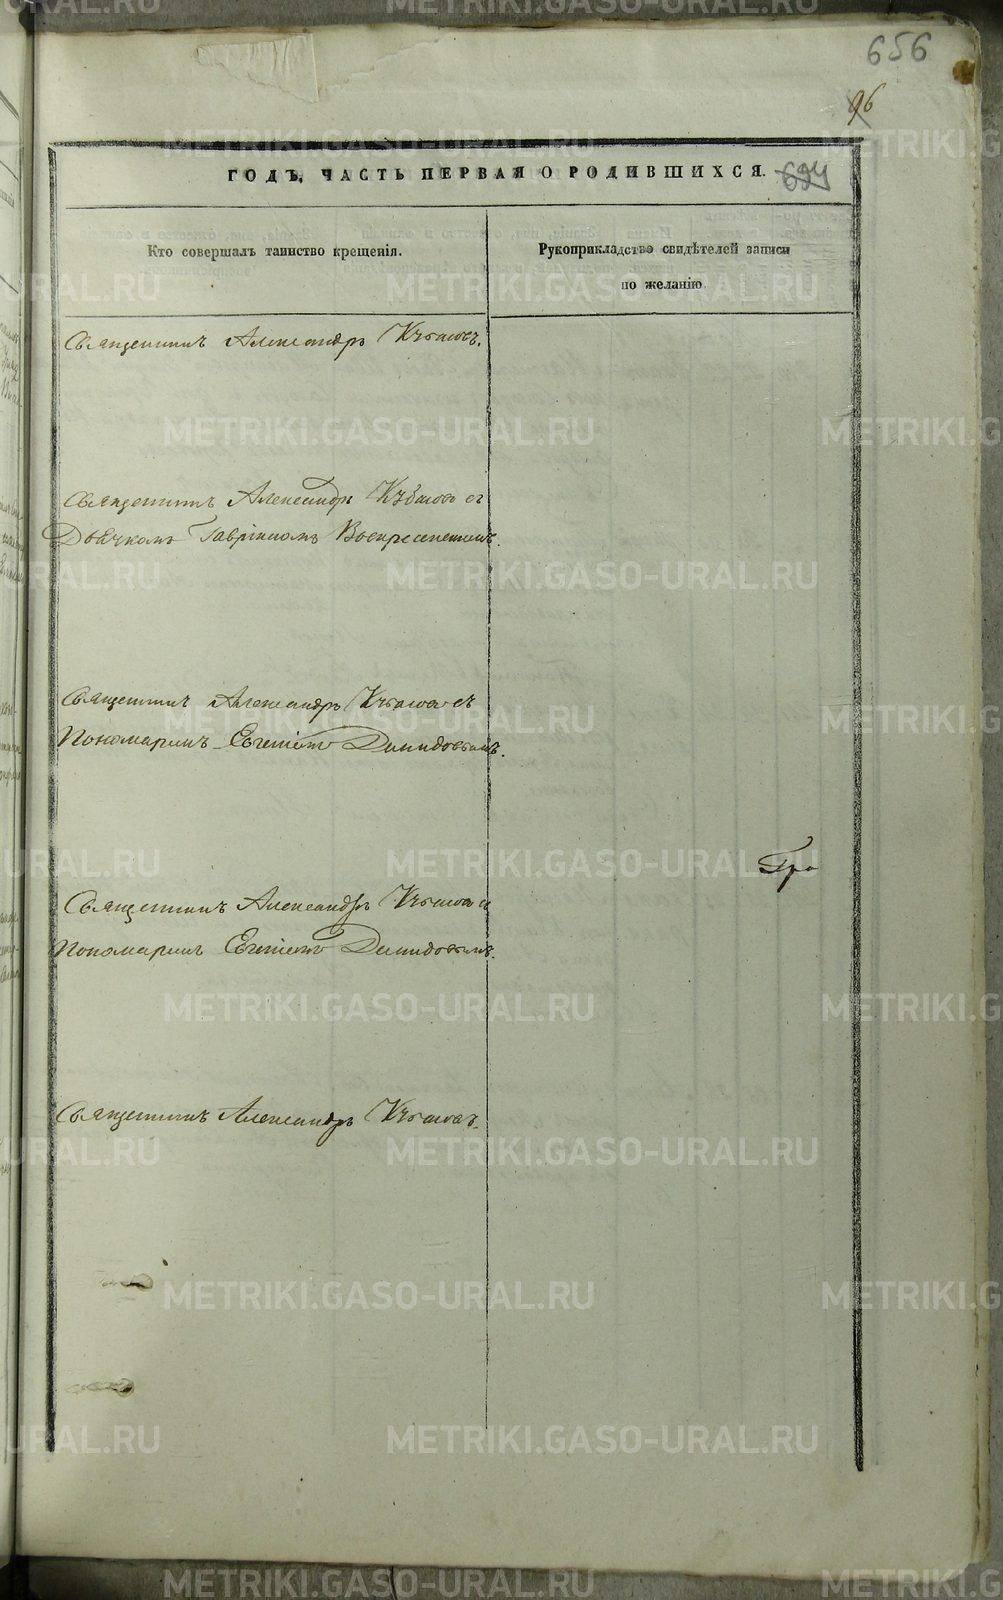 656
96
ГОДЪ, ЧАСТЬ ПЕРВАЯ О РОДИВШИХСЯ. 694
Кто совершалъ таинство крещенія.
Рукоприкладство свидѣтелей записи
по желанію
Священникъ Александръ
Священникъ Александръ съ
Дьячкомъ Гавріиломъ Воскресенскимъ.
Священникъ Александръ съ
Пономаремъ Евгеніемъ Демидовымъ.
Гра
Священникъ Александръ
Пономаремъ Евгеніемъ Демидовымъ.
Священникъ Александръ
METRIKI.GASO-URAL.RU